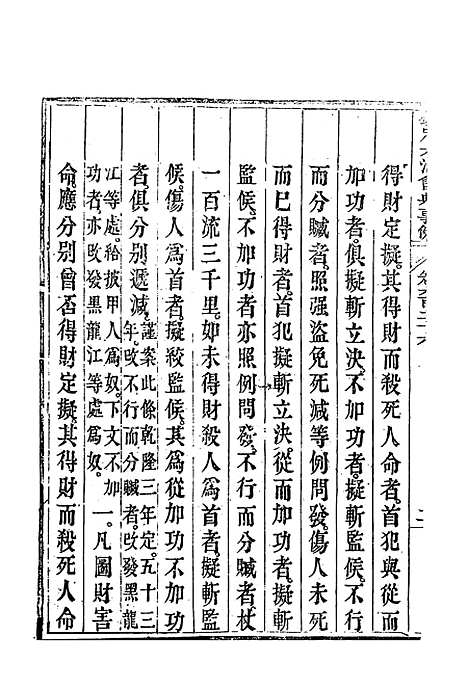 欽定大清會典事例
得財定擬。其得財而殺死人命者。首犯與從而
加功者。俱擬斬立決。不加功者。擬斬監候。不行
而分贓者。照强盜免死減等例問發。傷人未死
而已得財者。首犯擬斬立決。從而加功者。擬斬
監候。不加功者。亦照例問發。不行而分贓者。杖
一百流三千里。如未得財。殺人爲首者。擬斬監
候。傷人爲首者。擬絞監候。其爲從加功不加功
者。俱分别遞減。謹案此條乾隆三年定。五十三
年。改不行而分贓者。改發黑龍
江等處。給披甲人爲奴。下文不加
功者。亦改發黑龍江等處爲奴。一。凡圖財害
命。應分别曾否得財定擬。其得財而殺死人命